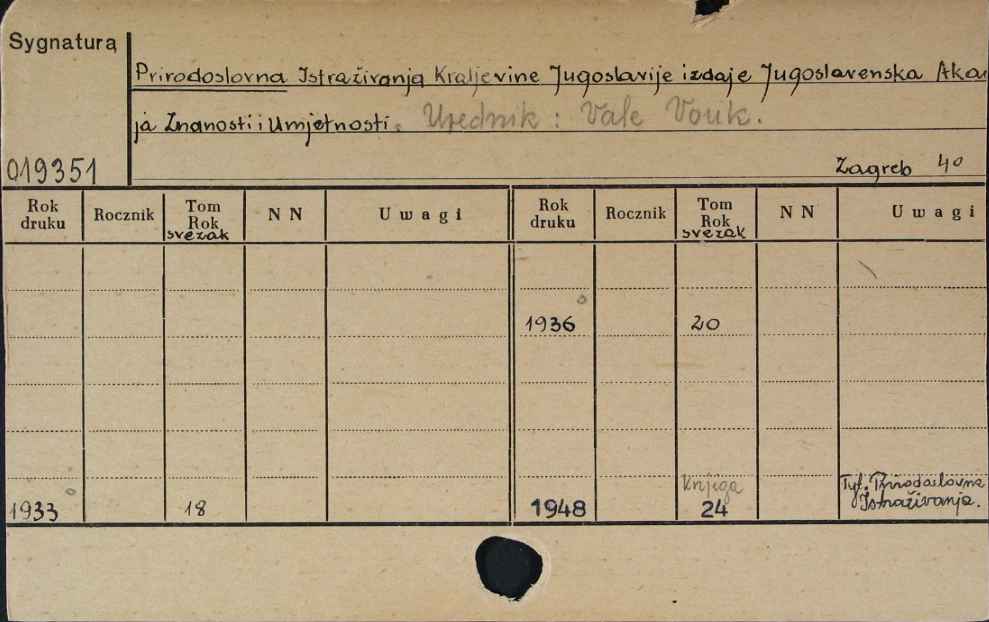 Sygnatura
Prirodoslovna Istraživanja Kraljevine Jugoslavije izdaje Jugoslavenska Aka
ja Znanosti i Umjetnosti. Urednik: Vale Vouk.
019351
Zagreb 40
Rok druku Rocznik Tom Rok svezak N N Uwagi Rok druku Rocznik Tom Rok svezak N N Uwagi
1936 20
Knjiga Tyt. Prirodoslovna
1933 18 1948 24 Istraživanja.